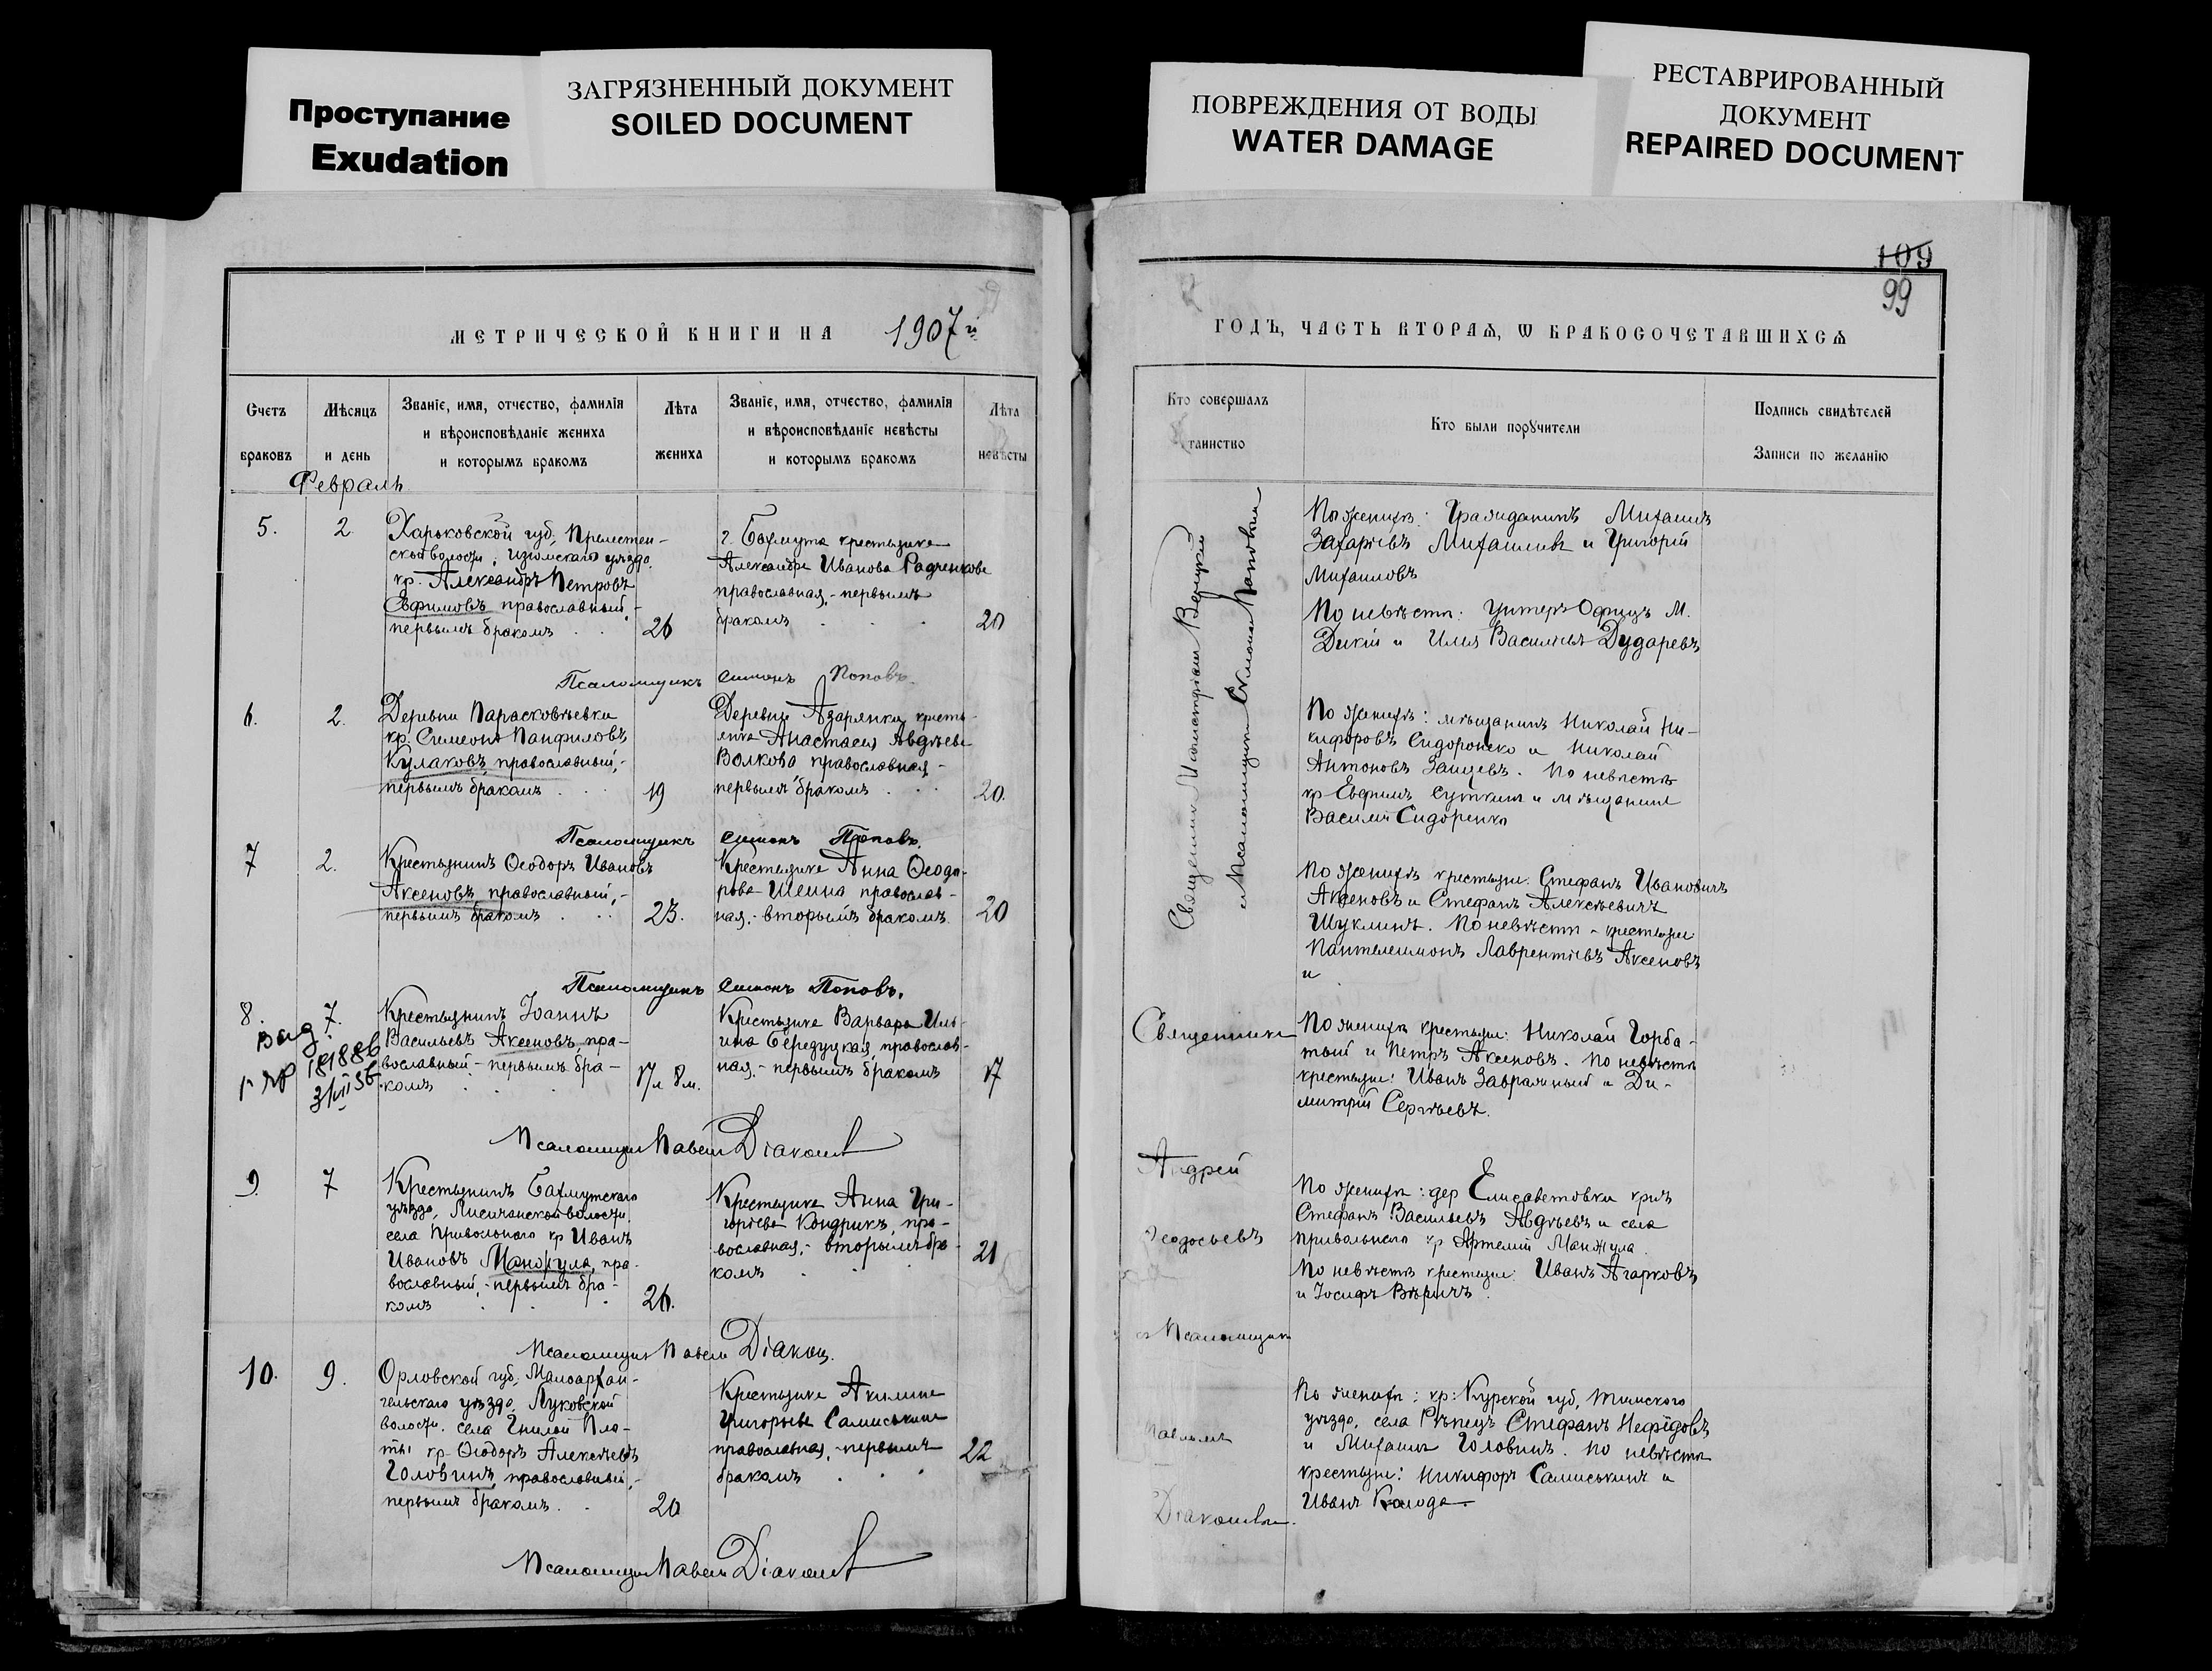 Проступание
Exudation
ЗАГРЯЗНЕННЫЙ ДОКУМЕНТ
SOILED DOCUMENT
ПОВРЕЖДЕНИЯ ОТ ВОДЫ
WATER DAMAGE
РЕСТАВРИРОВАННЫЙ
ДОКУМЕНТ
REPAIRED DOCUMENT
109
99
МЕТРИЧЕСКОЙ КНИГИ НА 1907 й
Счетъ
браковъ
Мѣсяцъ
и день
Званіе, имя, отчество, фамилія
и вѣроисповѣданіе жениха
и которымъ бракомъ
Лѣта
жениха
Званіе, имя, отчество, фамилія
и вѣроисповѣданіе невѣсты
и которымъ бракомъ
Лѣта
невѣсты
Февраль
5.
2.
Харьковской губ,
волости, Изюмскаго уѣзда
кр. Александръ Петровъ
Ефимовъ православный,-
первымъ бракомъ
26
г. Бахмута крестьянка
Александра Иванова Радченкова
православная,- первымъ
бракомъ
20
Псаломщикъ Симонъ Поповъ.
6.
2.
Деревни Парасковѣевки
кр. Симеонъ Панфиловъ
Кулаковъ, православный,-
первымъ бракомъ
19
Деревни кресть-
янка Анастасія Авдѣева
Волкова православная,-
первымъ бракомъ
20.
Псаломщикъ Симонъ Поповъ.
7
2.
Крестьянинъ Ѳеодоръ Ивановъ
Аксеновъ, православный,-
первымъ бракомъ
23.
Крестьянка Анна Ѳеодо-
рова Шеина православ-
ная,- вторымъ бракомъ
20
Псаломщикъ Симонъ Поповъ.
8.
7.
Крестьянинъ Іоаннъ
Васильевъ Аксеновъ, пра-
вославный,- первымъ бра-
комъ
17 л 8 м.
Крестьянка Варвара Иль-
ина православ-
ная,- первымъ бракомъ
17
Псаломщикъ Павелъ Діаконовъ
9.
7
Крестьянинъ Бахмутскаго
уѣзда, Лисичанской волости
села Привольнаго кр Иванъ
Ивановъ Манжула, пра-
вославный,- первымъ бра-
комъ
26.
Крестьянка Анна Гри-
горьева Кондрикъ, пра-
вославная,- вторымъ бра-
комъ
21
Псаломщикъ Павелъ Діаконовъ
10.
9.
Орловской губ, Малоархан-
гельскаго уѣзда, Луковской
волости, села Гнилой Пла-
ты кр Ѳеодоръ Алексѣевъ
Головинъ, православный,-
первымъ бракомъ.
20
Крестьянка Акилина
Григорьева Самиськина
православная,- первымъ
бракомъ
22
Псаломщикъ Павелъ Діаконовъ
ГОДЪ, ЧАСТЬ ВТОРАЯ, Ѡ БРАКОСОЧЕТАВШИХСЯ
Кто совершалъ
таинство
Кто были поручители
Подпись свидѣтелей
Записи по желанію
По женихѣ: Гражданинъ Михаилъ
Захарьевъ Михаилевъ и Григорій
Михаиловъ
По невѣстѣ: Унтеръ Офицъ М.
Дикій и Илья Васильевъ Дударевъ
По женихѣ: мѣщанинъ Николай Ни-
кифоровъ Сидоренко и Николай
Антоновъ Зайцевъ. По невѣстѣ
кр Евфимъ и мѣщанинъ
Василій Сидоренко
По женихѣ крестьяне: Стефанъ Ивановичъ
Аксеновъ и Стефанъ Алексѣевичъ
Шуклинъ. По невѣстѣ - крестьяне
Пантелеимонъ Лаврентіевъ Аксеновъ
и
Священникъ
По женихѣ крестьяне: Николай Горба-
тый и Петръ Аксеновъ. По невѣстѣ
крестьяне: Иванъ Завражный и Ди-
митрій Сергѣевъ.
Андрей
Ѳеодосьевъ
По женихѣ: дер Елисаветовки кр-нъ
Стефанъ Васильевъ Авдѣевъ и села
Привольнаго кр Артемій Манжула
По невѣстѣ крестьяне: Иванъ Агарковъ
и Іосифъ
и Псаломщикъ
Павелъ
Діаконовъ.
По женихѣ: кр: Курской губ, Тимскаго
уѣзда, села Рѣпецъ Стефанъ Нефедовъ
и Михаилъ Головинъ. По невѣстѣ
крестьяне: Никифоръ Самиськинъ и
Иванъ Колода